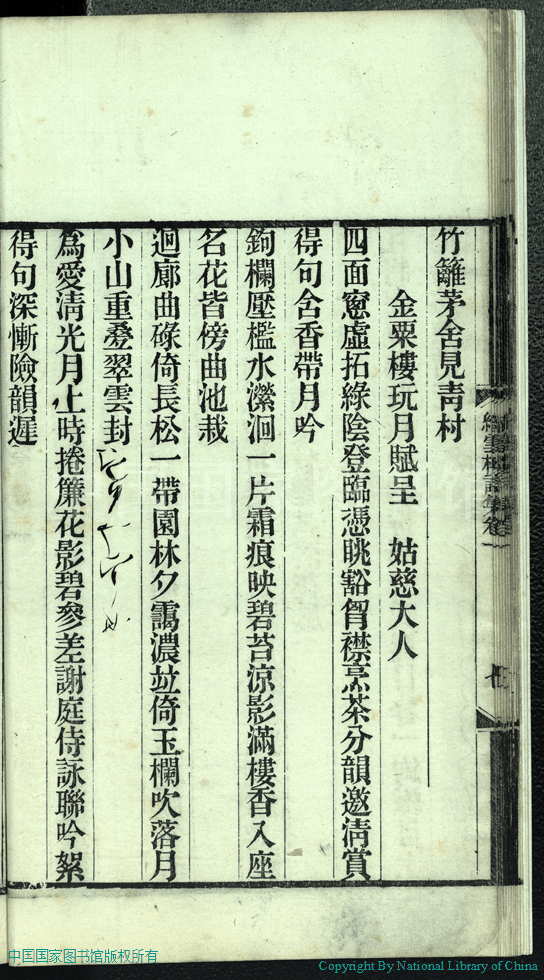 竹籬茅舍見靑村
金粟樓玩月賦呈　姑慈大人
四面窓虛拓綠陰登臨憑眺豁胷襟烹茶分韻邀淸賞
得句含香帶月吟
鉤欄壓檻水瀠洄一片霜痕映碧苔涼影滿樓香入座
名花皆傍曲池栽
迴廊曲磴倚長松一帶園林夕靄濃竝倚玉欄吹落月
小山重疊翠雲封
爲愛淸光月上時捲簾花影碧參差謝庭侍詠聯吟絮
得句深慚險韻遲
中国国家图书馆版权所有
Copyright By National Library of China